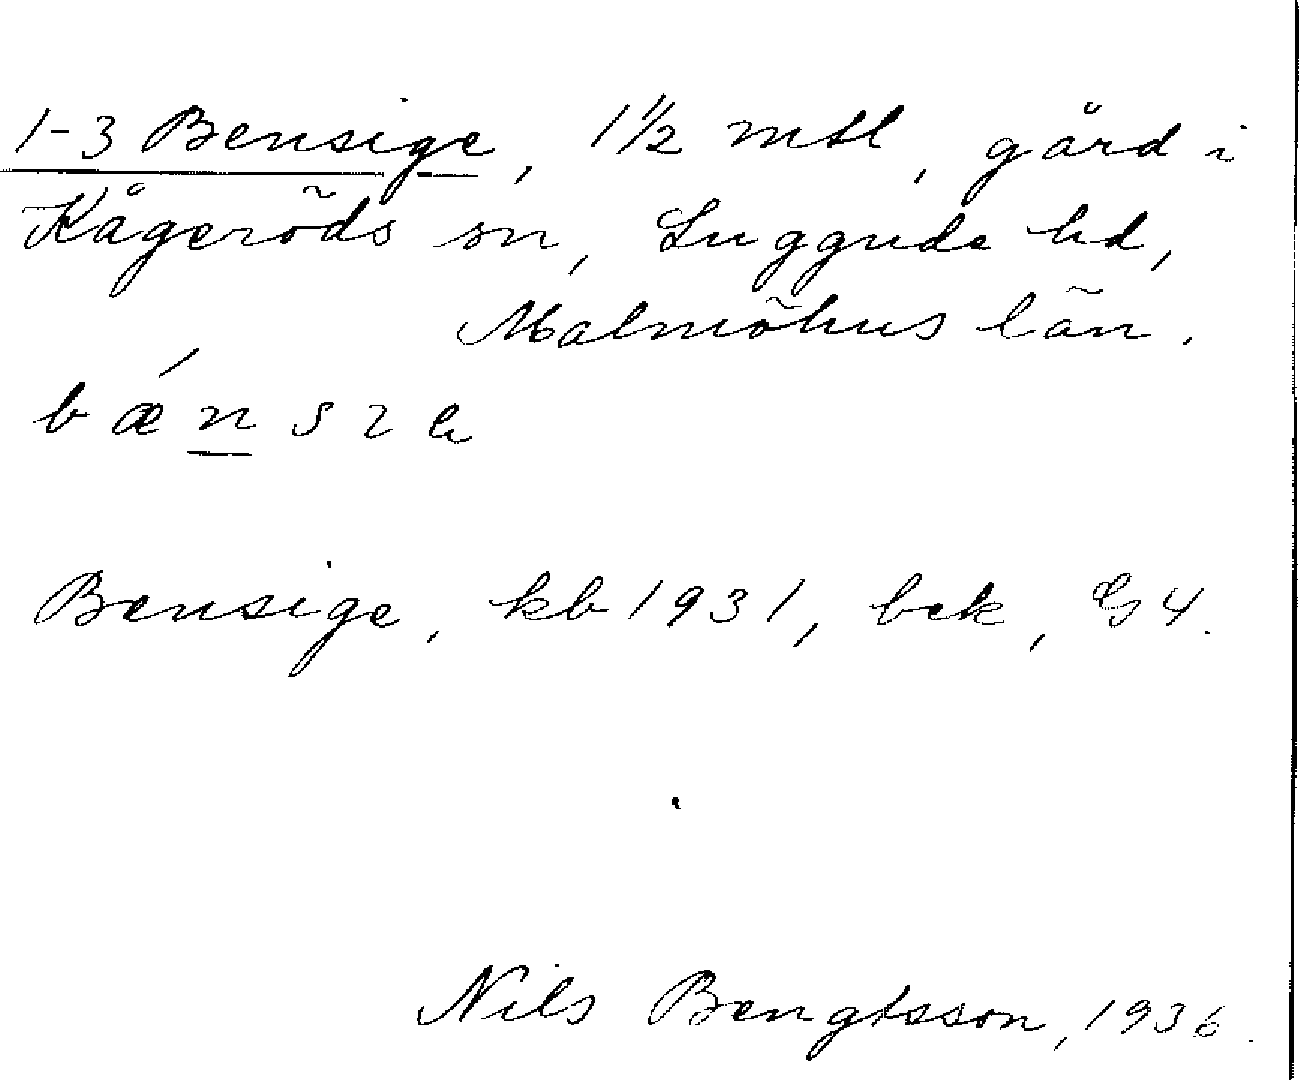 1-3 Bensige, 1 1/2 mtl, gård i
Kågeröds sn, Luggude hd,
Malmöhus län.
Bensige, kb 1931, bek, G4.
Nils Bengtsson, 1936.